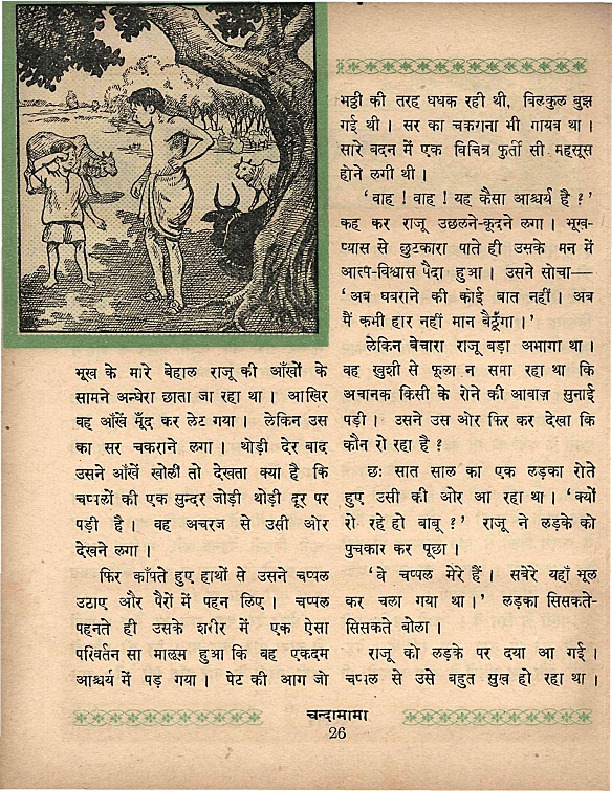 भूख के मारे बेहाल राजू की आँखों के
सामने अन्धेरा छाता जा रहा था। आखिर
वह आँखें मूँद कर लेट गया। लेकिन उस
का सर चकराने लगा। थोड़ी देर बाद
उसने आँखें खोली तो देखता क्या है कि
चप्पलों की एक सुन्दर जोड़ी थोड़ी दूर पर
पड़ी है। वह अचरज से उसी ओर
देखने लगा।
फिर काँपते हुए हाथों से उसने चप्पल
उठाए और पैरों में पहन लिए। चप्पल
पहनते ही उसके शरीर में एक ऐसा
परिवर्तन सा मालूम हुआ कि वह एकदम
आश्चर्य में पड़ गया। पेट की आग जो
भट्ठी की तरह धधक रही थी, बिल्कुल बुझ
गई थी। सर का चकराना भी गायब था।
सारे बदन में एक विचित्र फुर्ती सी महसूस
होने लगी थी।
'वाह! वाह! यह कैसा आश्चर्य है?'
कह कर राजू उछलने-कूदने लगा। भूख-
प्यास से छुटकारा पाते ही उसके मन में
आत्म-विश्वास पैदा हुआ। उसने सोचा—
'अब घबराने की कोई बात नहीं। अब
मैं कभी हार नहीं मान बैठूँगा।'
लेकिन बेचारा राजू बड़ा अभागा था।
वह खुशी से फूला न समा रहा था कि
अचानक किसी के रोने की आवाज़ सुनाई
पड़ी। उसने उस ओर फिर कर देखा कि
कौन रो रहा है?
छः सात साल का एक लड़का रोते
हुए उसी की ओर आ रहा था। 'क्यों
रो रहे हो बाबू?' राजू ने लड़के को
पुचकार कर पूछा।
'वे चप्पल मेरे हैं। सबेरे यहाँ भूल
कर चला गया था।' लड़का सिसकते-
सिसकते बोला।
राजू को लड़के पर दया आ गई।
चप्पल से उसे बहुत सुख हो रहा था।
चन्दामामा
26